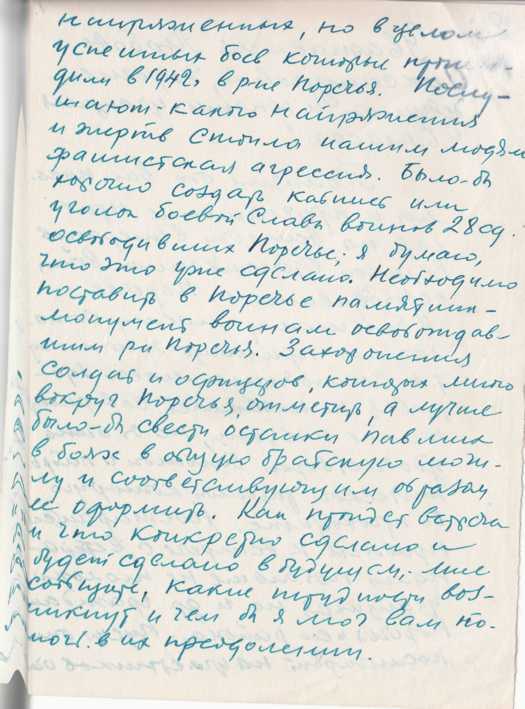 напряженных, но в целом
успешных боев которые прохо-
дили в 1942г в р-не Поречья. Послу-
шают - какого напряжения
и жертв стоила нашим людям
фашистская агрессия. Было-бы
хорошо создать кабинет или
уголок боевой Славы воинов 28 сд.
освободивших Поречье; я думаю,
что это уже сделано. Необходимо
поставить в Поречье памятник-
монумент воинам освобождав-
шим р-н Поречья. Захоронения
солдат и офицеров, которых много
вокруг Поречья, отметить, а лучше
было-бы свести останки павших
в боях в общую братскую моги-
лу и соответствующим образом
ее оформить. Как пройдет встреча
и что конкретно сделано и
будет сделано в будущем, мне
сообщите, какие трудности воз-
никнут и чем бы я мог вам по-
мочь в их преодолении.